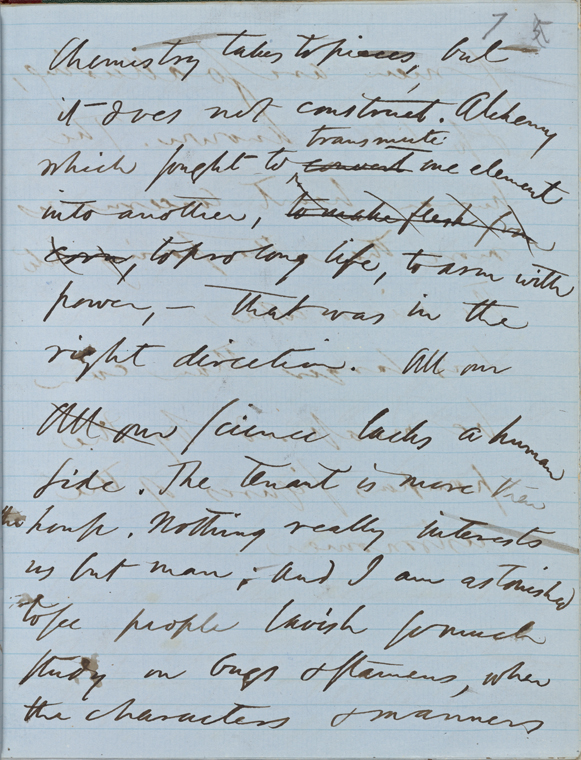 7 5
Chemistry takes to pieces, but
it does not construct. Alchemy
transmute
which sought to convert one element
into another, to make flesh from
corn, to prolong life, to arm with
power, — that was in the
right direction. All our
All our science lacks a human
side. The tenant is more than
the house. Nothing really interests
us but man; and I am astonished
to see people lavish so much
study on bugs & stamens, when
the characters & manners